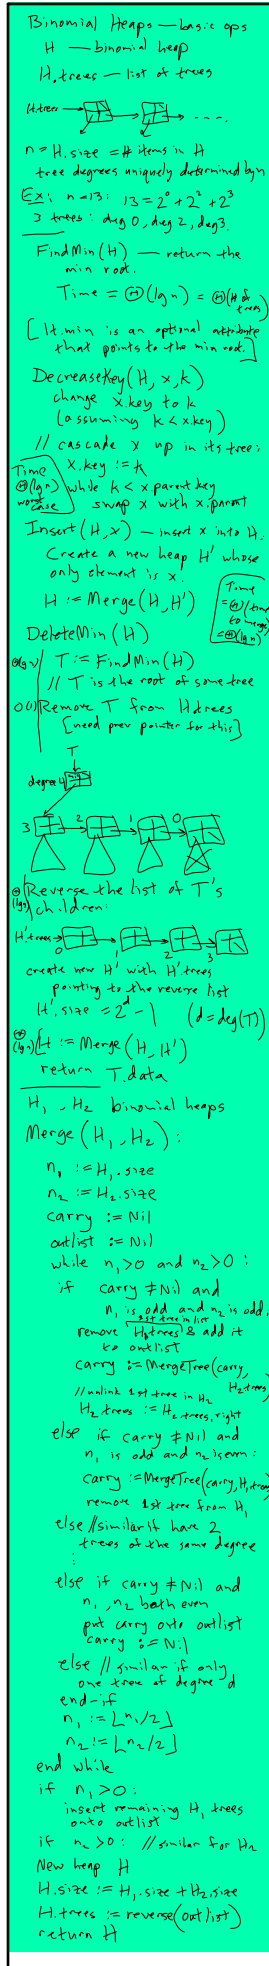 Binomial Heaps — basic ops
H — binomial heap
H.trees — list of trees
H.trees
n = H.size = # items in H
tree degrees uniquely determined by n
Ex: n=13: 13 = 2^0 + 2^2 + 2^3
3 trees: deg 0, deg 2, deg 3.
FindMin(H) — return the
min root.
Time = Θ(lg n) = Θ(# of trees)
[H.min is an optional attribute
that points to the min root.]
DecreaseKey(H, x, k)
change x.key to k
(assuming k < x.key)
// cascade x up in its tree:
x.key := k
while k < x.parent.key
swap x with x.parent
Time
Θ(lg n)
worst
case
Insert(H, x) — insert x into H.
Create a new heap H' whose
only element is x.
H := Merge(H, H')
Time
= Θ(time
to merge)
= Θ(lg n)
DeleteMin(H)
Θ(lg n) T := FindMin(H)
// T is the root of some tree
O(1) Remove T from H.trees
[need prev pointer for this]
T
degree 4
3 2 1 0
Θ(lg n) Reverse the list of T's
children:
H'.trees
0 1 2 3
create new H' with H'.trees
pointing to the reverse list
H'.size = 2^d - 1 (d = deg(T))
Θ(lg n) H := Merge(H, H')
return T.data
H₁, H₂ binomial heaps
Merge(H₁, H₂):
n₁ := H₁.size
n₂ := H₂.size
carry := Nil
outlist := Nil
while n₁>0 and n₂>0:
if carry ≠ Nil and
n₁ is odd and n₂ is odd:
1st tree in list
remove H₁.trees & add it
to outlist
carry := MergeTree(carry, H₂.trees)
// unlink 1st tree in H₂
H₂.trees := H₂.trees.right
else if carry ≠ Nil and
n₁ is odd and n₂ is even:
carry := MergeTree(carry, H₁.trees)
remove 1st tree from H₁
else // similar if have 2
trees of the same degree
⋮
else if carry ≠ Nil and
n₁, n₂ both even
put carry onto outlist
carry := Nil
else // similar if only
one tree of degree d
end-if
n₁ := ⌊n₁/2⌋
n₂ := ⌊n₂/2⌋
end while
if n₁>0:
insert remaining H₁ trees
onto outlist
if n₂>0: // similar for H₂
New heap H
H.size := H₁.size + H₂.size
H.trees := reverse(outlist)
return H